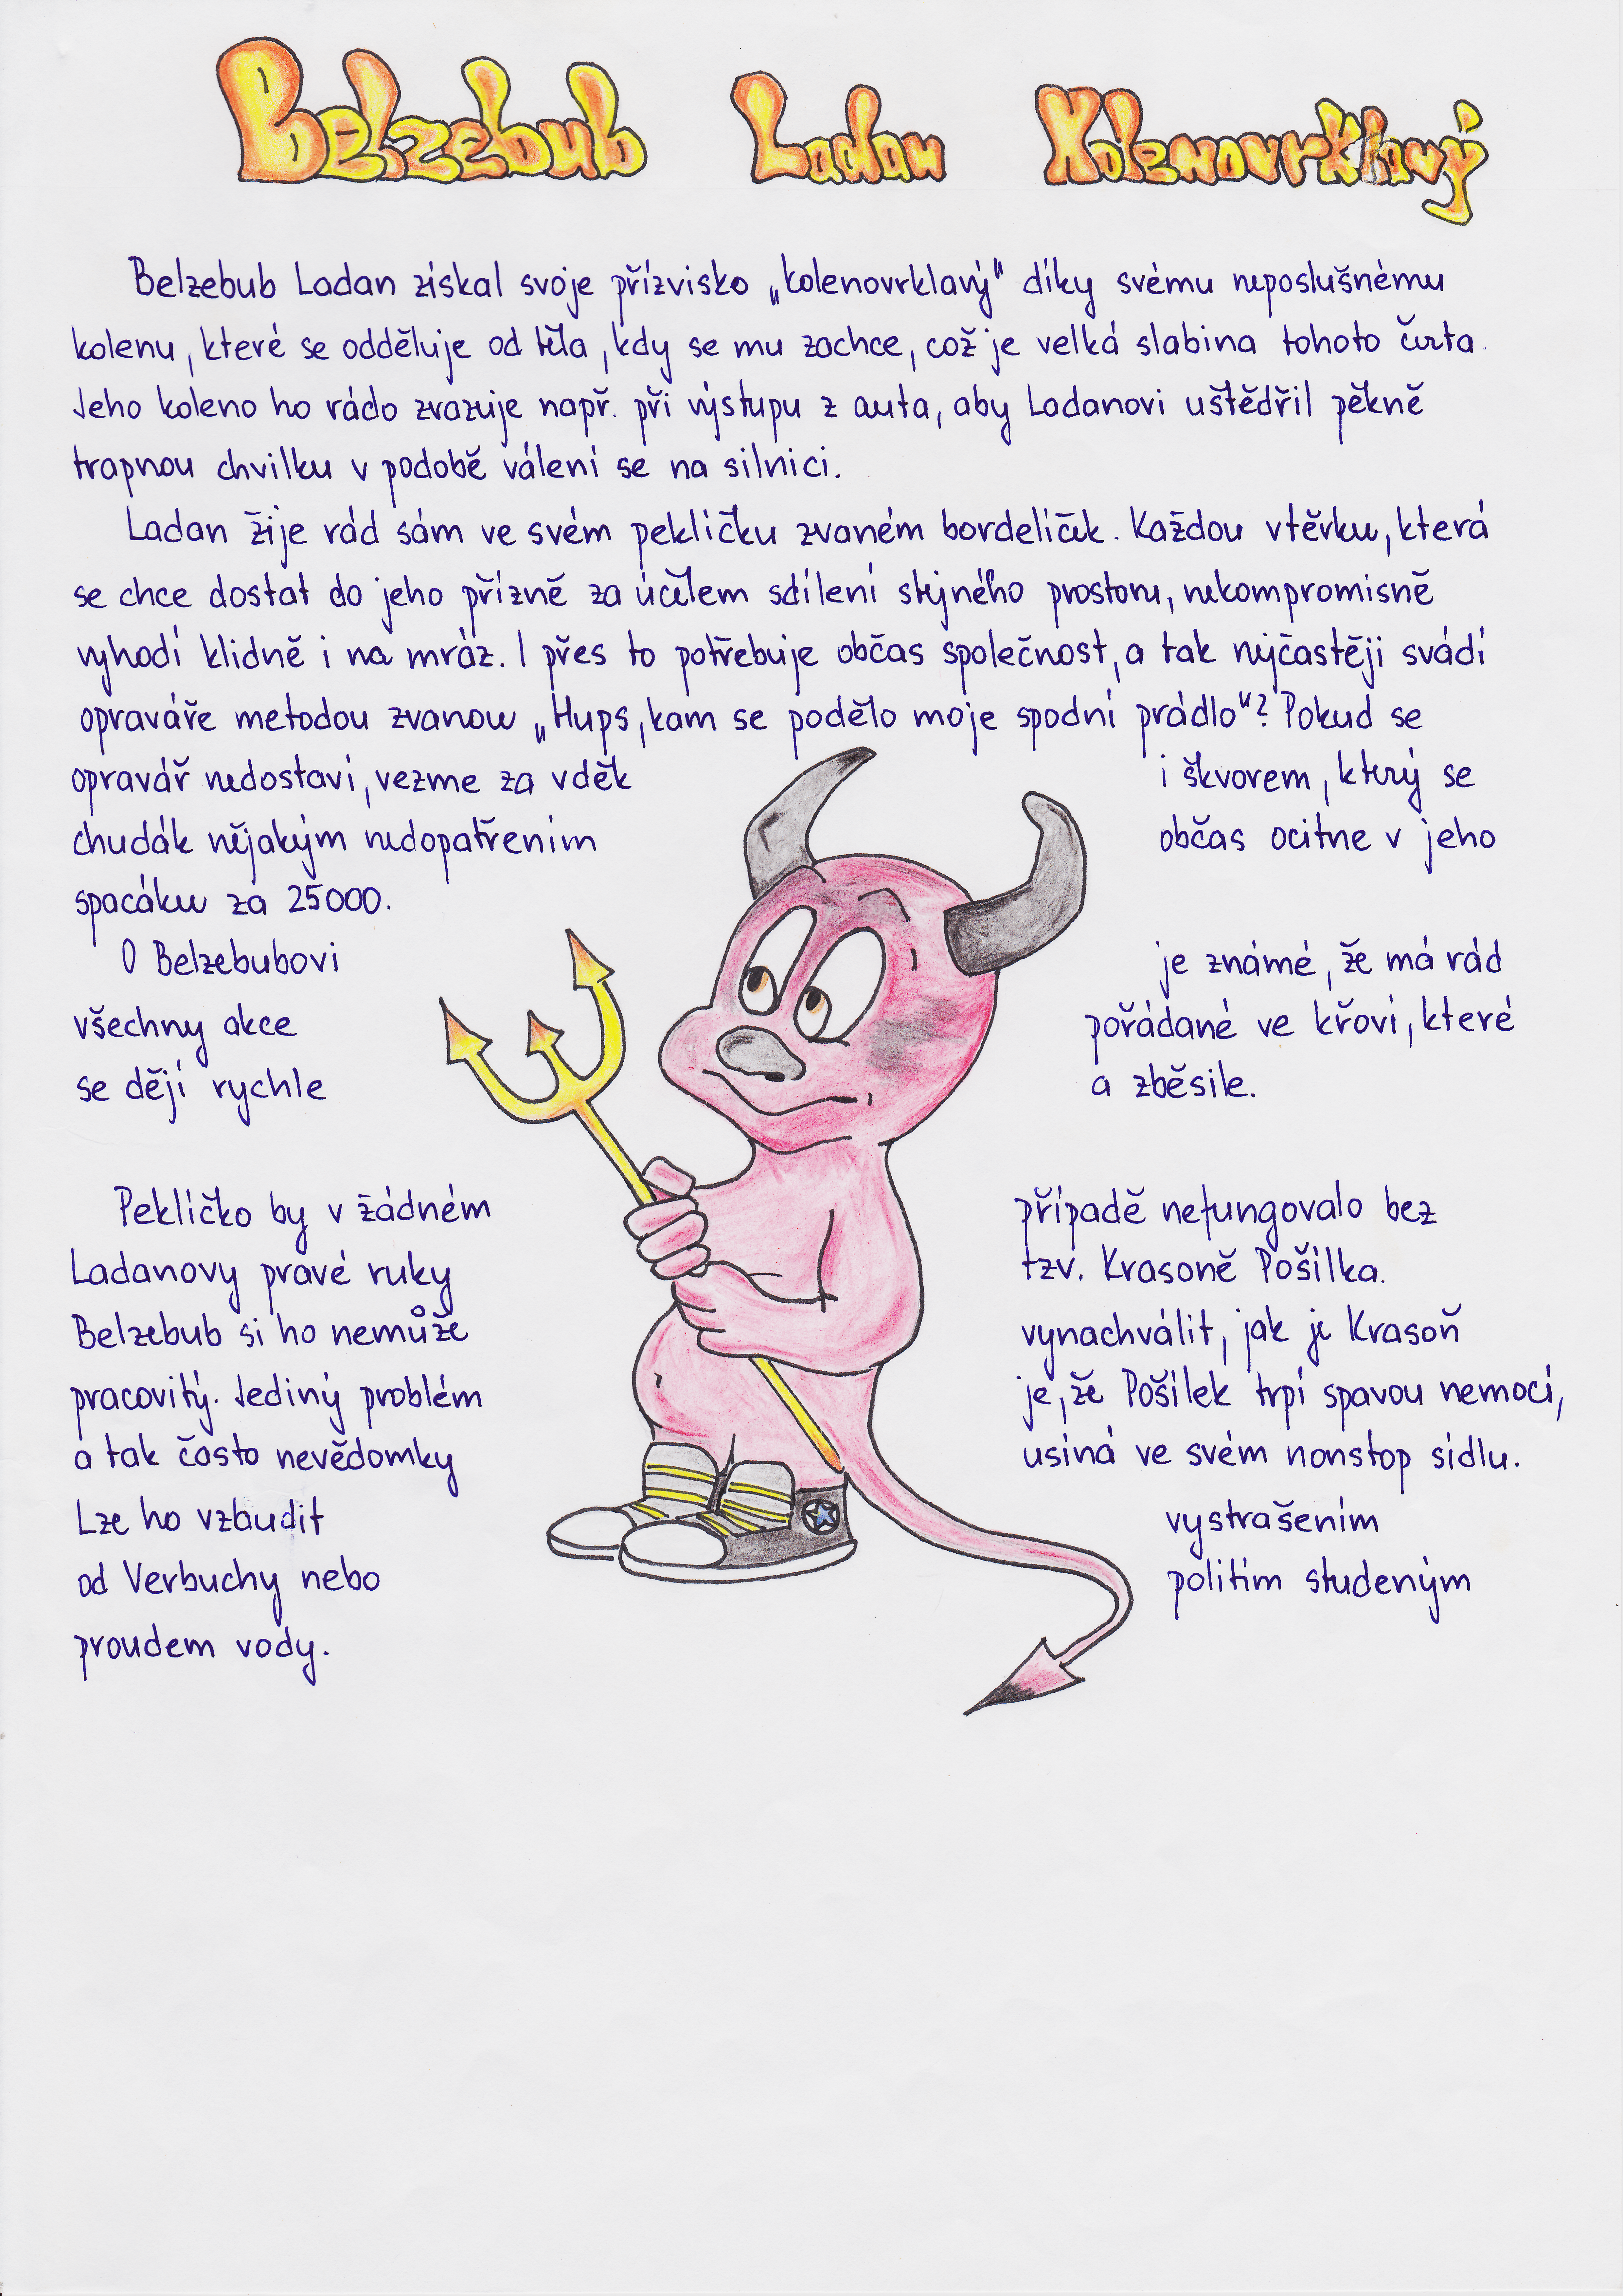 Belzebub Ladan Kolenovrklavý
Belzebub Ladan získal svoje přízvisko „kolenovrklavý" díky svému neposlušnému
kolenu, které se odděluje od těla, kdy se mu zachce, což je velká slabina tohoto čerta.
Jeho koleno ho rádo zrazuje např. při výstupu z auta, aby Ladanovi uštědřil pěkně
trapnou chvilku v podobě válení se na silnici.
Ladan žije rád sám ve svém peklíčku zvaném bordelíček. Každou vtěrku, která
se chce dostat do jeho přízně za účelem sdílení stejného prostoru, nekompromisně
vyhodí klidně i na mráz. I přes to potřebuje občas společnost, a tak nejčastěji svádí
opraváře metodou zvanou „Hups, kam se podělo moje spodní prádlo"? Pokud se
opravář nedostaví, vezme za vděk i škvorem, který se
chudák nějakým nedopatřením občas ocitne v jeho
spacáku za 25000.
O Belzebubovi je známé, že má rád
všechny akce pořádané ve křoví, které
se dějí rychle a zběsile.
Peklíčko by v žádném případě nefungovalo bez
Ladanovy pravé ruky tzv. Krasoně Pošilka.
Belzebub si ho nemůže vynachválit, jak je Krasoň
pracovitý. Jediný problém je, že Pošilek trpí spavou nemocí,
a tak často nevědomky usíná ve svém nonstop sídlu.
Lze ho vzbudit vystrašením
od Verbuchy nebo politím studeným
proudem vody.